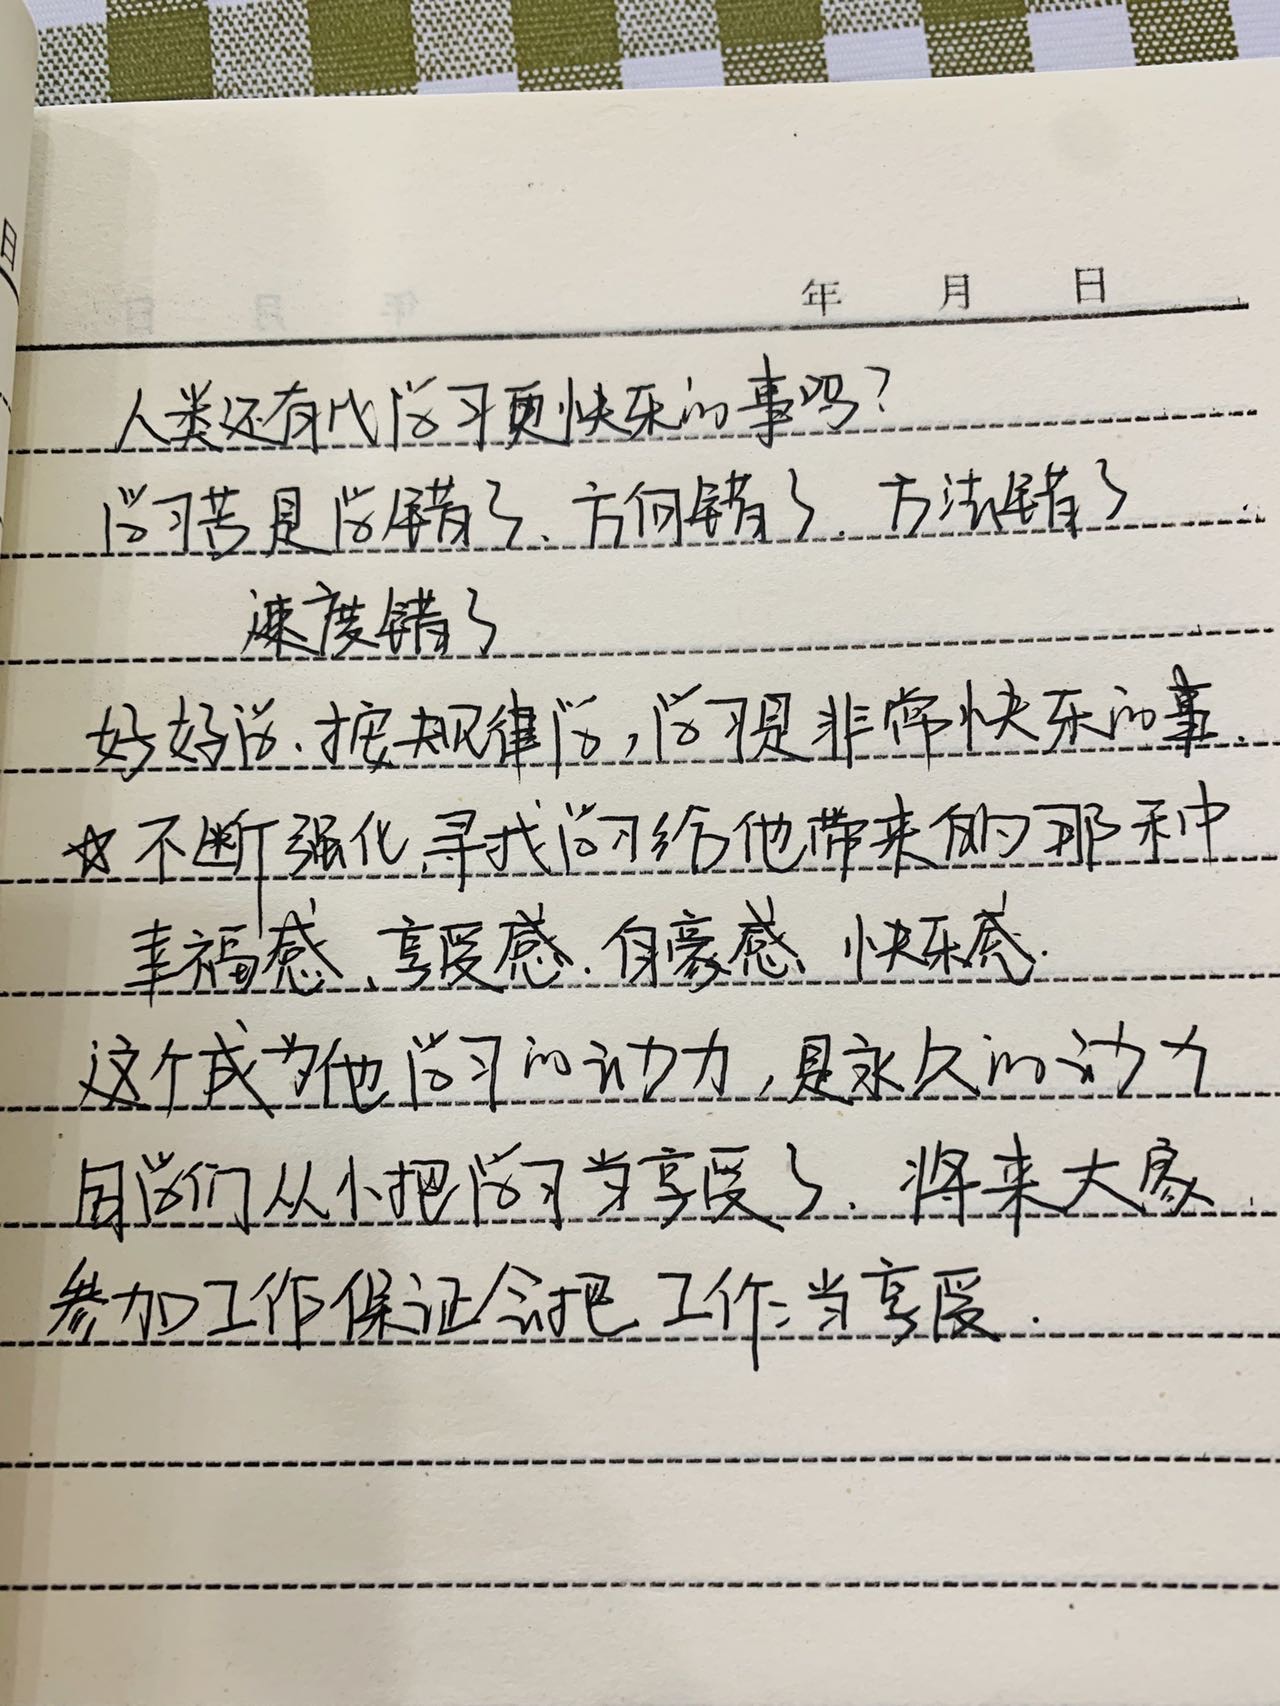 日
年 月 日
人类还有比学习更快乐的事吗?
学习苦是学错了、方向错了、方法错了
速度错了
好好学、按规律学,学习是非常快乐的事.
☆不断强化,寻找学习给他带来的那种
幸福感、享受感、自豪感、快乐感.
这个成为他学习的动力,是永久的动力
同学们从小把学习当享受了、将来大家
参加工作保证会把工作当享受.